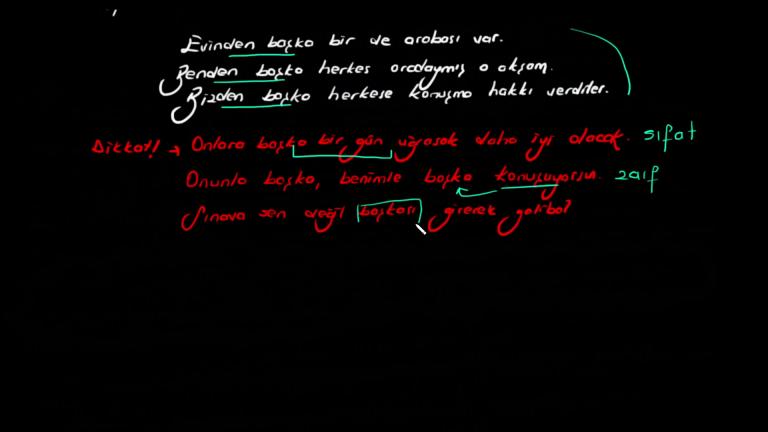 Evinden başka bir de arabası var.
Benden başka herkes oradaymış o akşam.
Bizden başka herkese konuşma hakkı verdiler.
Dikkat! → Onlara başka bir gün uğrasak daha iyi olacak. sıfat
Onunla başka, benimle başka konuşuyorsun. zarf
Sınava sen değil başkası girecek galiba!